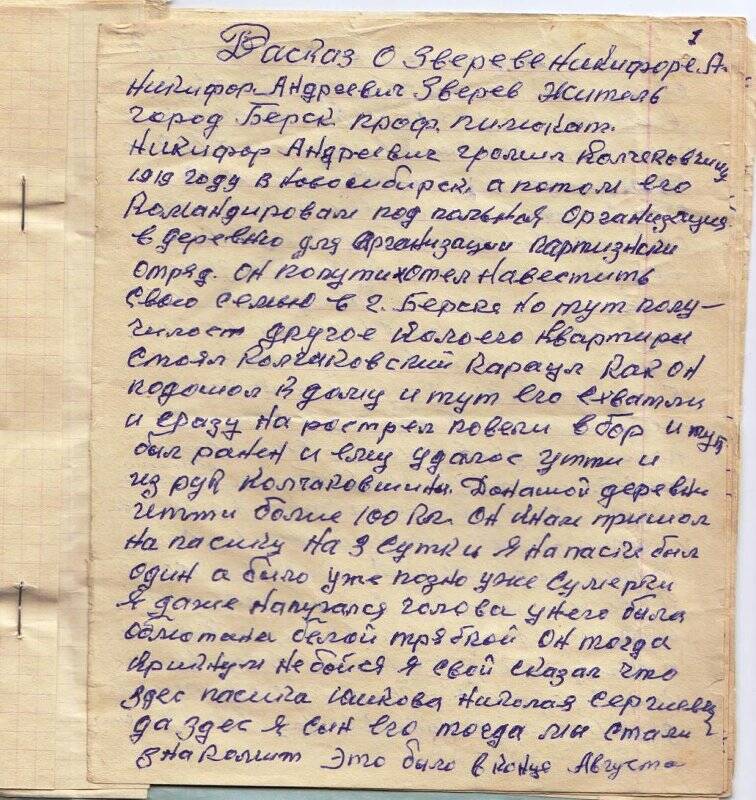 1
Расказ о Звереве Никифоре А.
Никифор Андреевич Зверев житель
город Берск. проф. пимокат.
Никифор Андреевич громил Колчаковчину
1919 году в Новосибирск, а потом его
командировам под польная организация
в деревню для организации партизнски
отряд. он попути хотел навестить
свою семью в г. Берске но тут полу-
чилост другое Колоего квартиры
стоял Колчаковский караул как он
подошол к дому и тут его схватли
и сразу на рострел повели в бор и тут
был ранен и ему удалос утти и
из рук Колчаковшины. До нашой деревни
итти более 100 км. он кнам пришол
на пасику на 3 сутки я на пасике был
один а было уже позно уже сумерки
я даже напугался голова унего была
обмотана белой трябкой он тогда
крикнул не бойся я свой сказал что
здес пасика Юшкова Николая Сергиевич
да здес я сын его тогда мы стали
знакомит это было в конце Августа